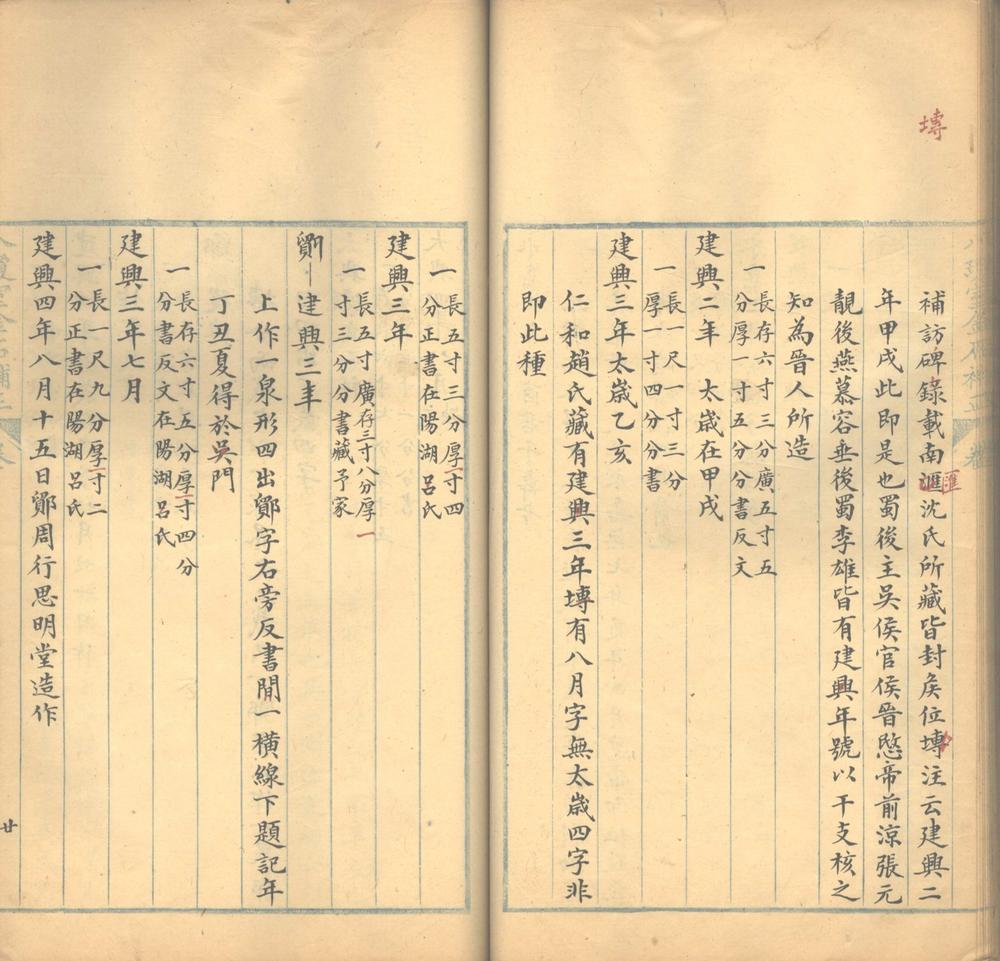 塼
匯
補訪碑錄載南滙沈氏所藏皆封矦位塼注云建興二
年甲戌此即是也蜀後主吳侯官侯晉愍帝前涼張元
靚後燕慕容垂後蜀李雄皆有建興年號以干支核之
知為晉人所造
一長存六寸三分廣五寸五
分厚一寸五分分書反文
建興二年　太歲在甲戌
一長一尺一寸三分
厚一寸四分分書
建興三年太歲乙亥
仁和趙氏藏有建興三年塼有八月字無太歲四字非
即此種
一長五寸三分厚一寸四
分正書在陽湖呂氏
建興三年
一長五寸廣存三寸八分厚一
寸三分分書藏予家
鄮建興三年
上作一泉形四出鄮字右旁反書閒一橫線下題記年
丁丑夏得於吳門
一長存六寸五分厚一寸四分
分書反文在陽湖呂氏
建興三年七月
一長一尺九分厚一寸二
分正書在陽湖呂氏
建興四年八月十五日鄮周行思明堂造作
廿